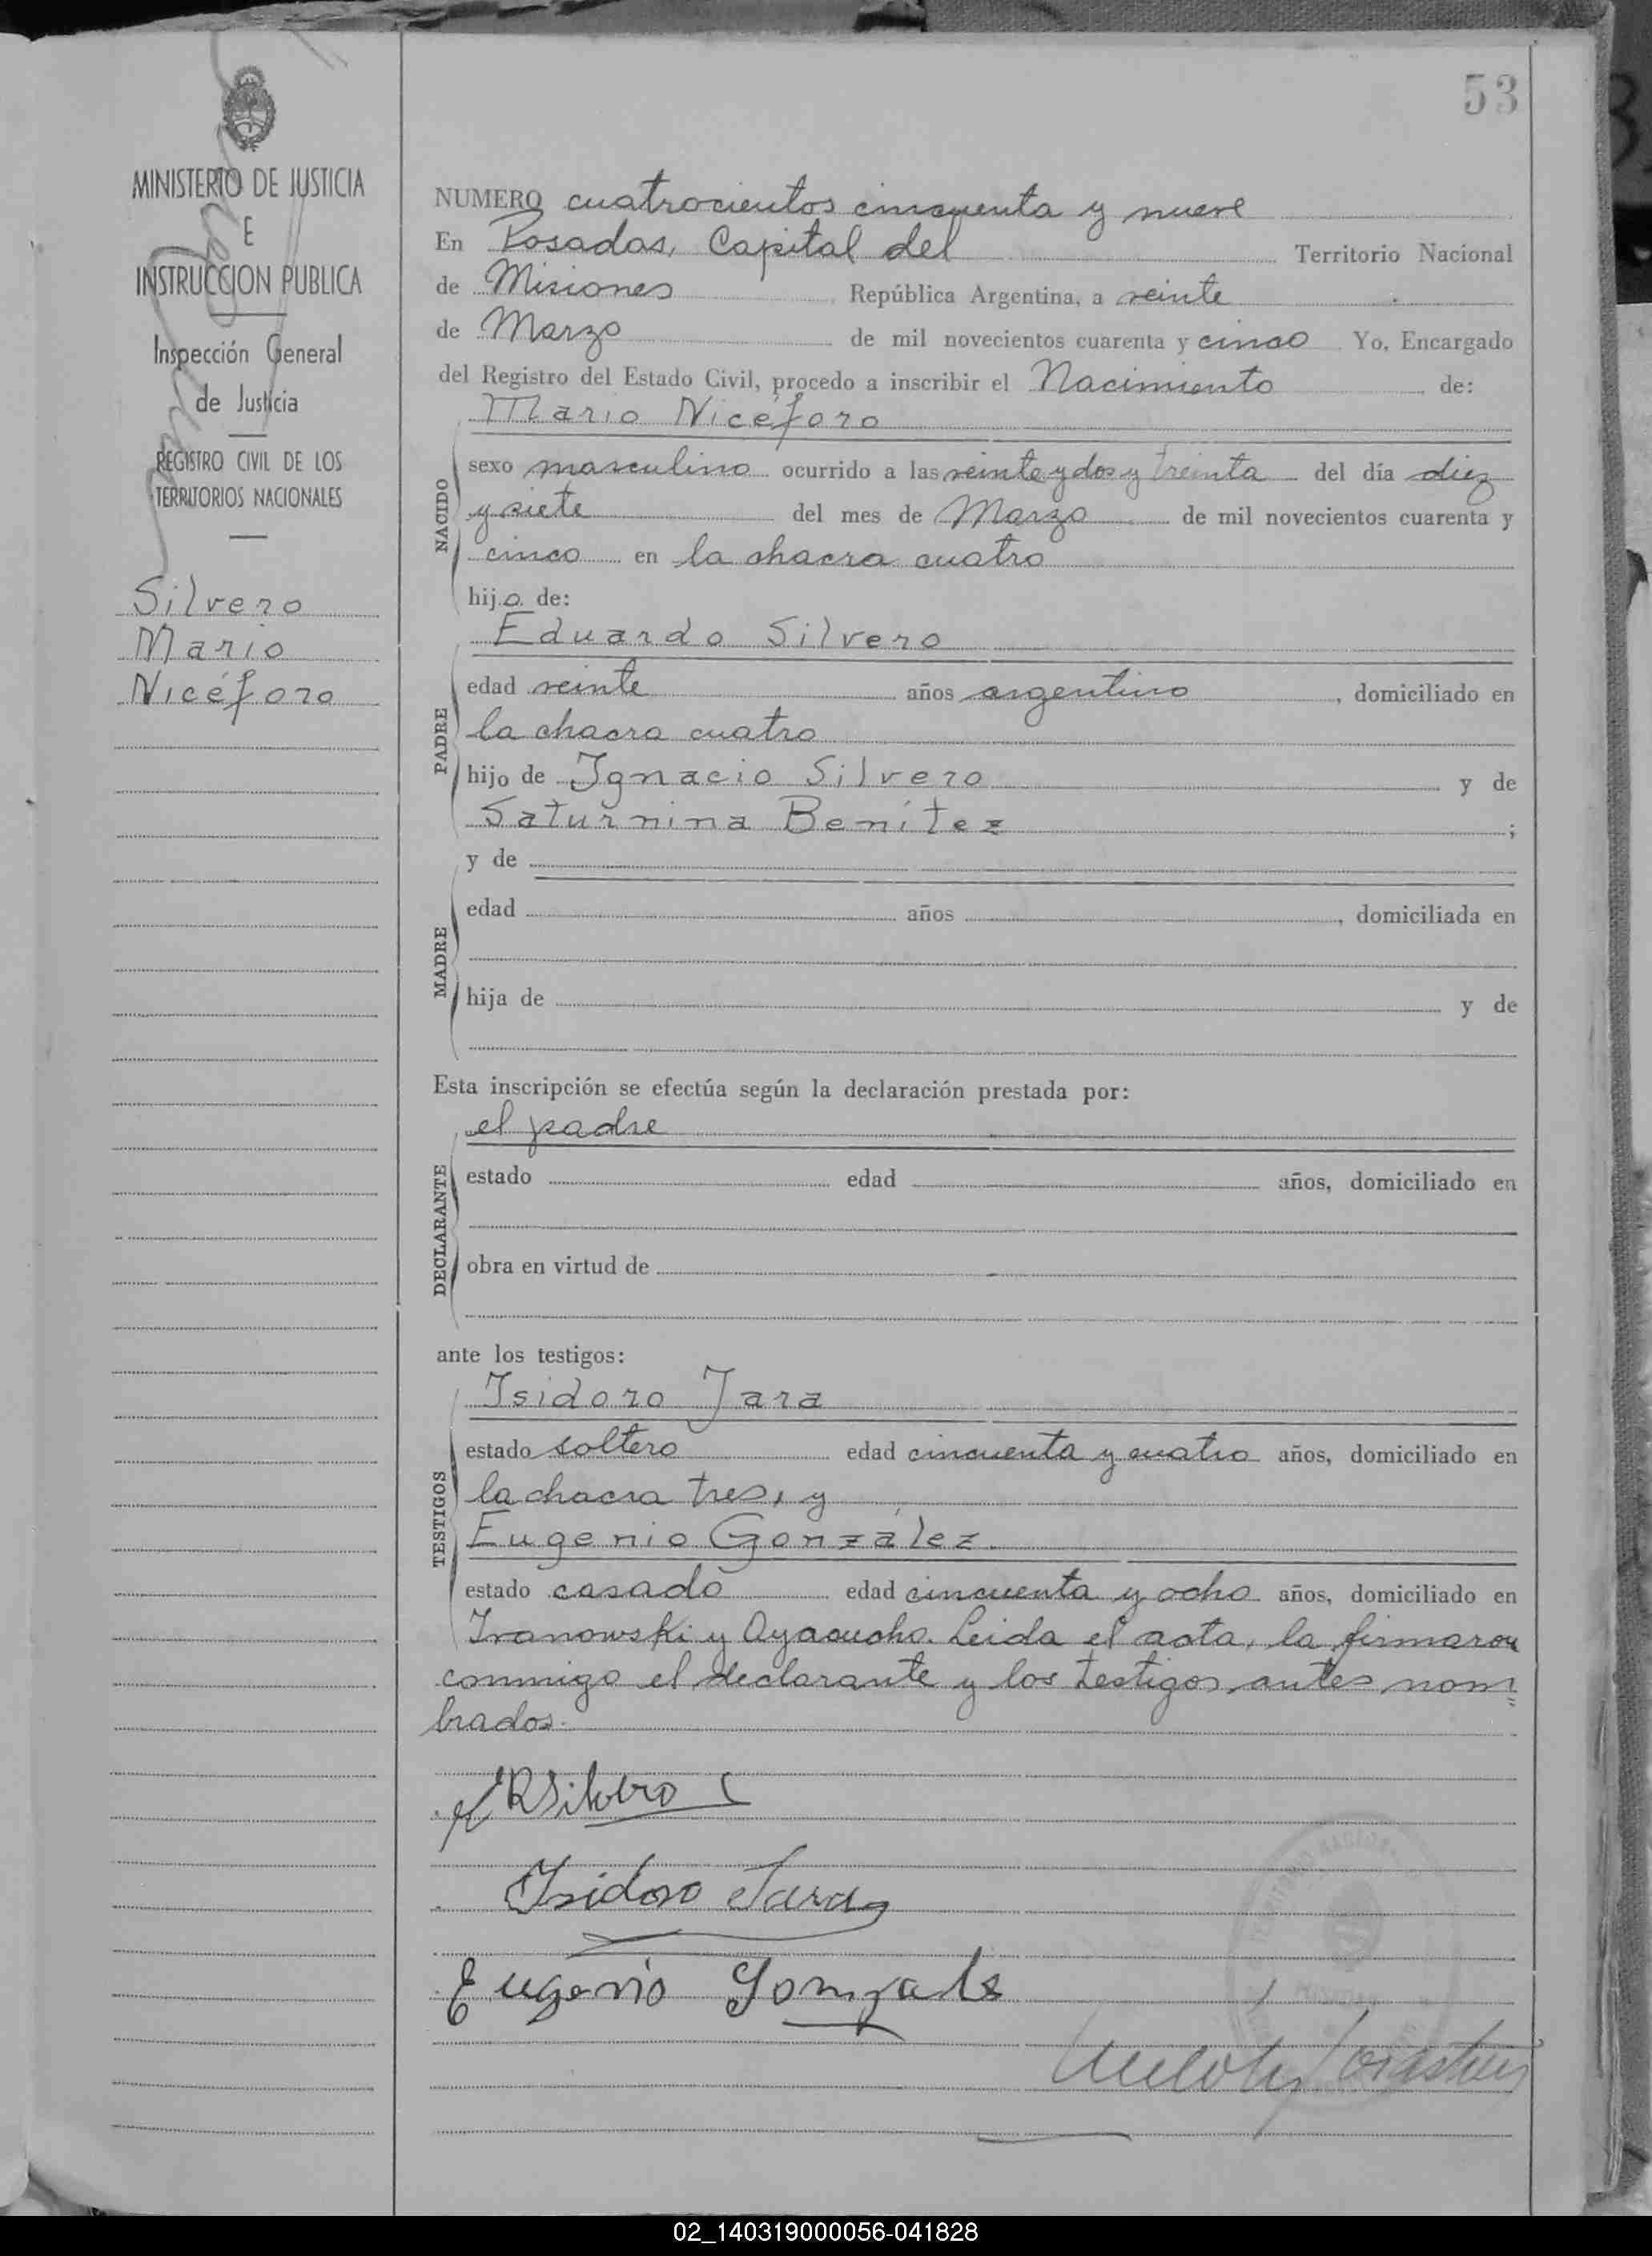 53
MINISTERIO DE JUSTICIA
E
INSTRUCCION PUBLICA
Inspección General
de Justicia
REGISTRO CIVIL DE LOS
TERRITORIOS NACIONALES
Silvero
Mario
Nicéforo
NUMERO cuatrocientos cincuenta y nueve
En Posadas, Capital del Territorio Nacional
de Misiones República Argentina, a veinte
de Marzo de mil novecientos cuarenta y cinco Yo, Encargado
del Registro del Estado Civil, procedo a inscribir el Nacimiento de:
Mario Nicéforo
NACIDO
sexo masculino ocurrido a las veinte y dos y treinta del día diez
y siete del mes de Marzo de mil novecientos cuarenta y
cinco en la chacra cuatro
hijo de:
Eduardo Silvero
PADRE
edad veinte años argentino, domiciliado en
la chacra cuatro
hijo de Ignacio Silvero y de
Saturnina Benítez ;
y de
MADRE
edad años , domiciliada en
hija de y de
Esta inscripción se efectúa según la declaración prestada por:
el padre
DECLARANTE
estado edad años, domiciliado en
obra en virtud de
ante los testigos:
Isidoro Jara
TESTIGOS
estado soltero edad cincuenta y cuatro años, domiciliado en
la chacra tres, y
Eugenio González.
estado casado edad cincuenta y ocho años, domiciliado en
Ivanowski y Ayacucho. Leida el acta, la firmaron
conmigo el declarante y los testigos antes nom=
brados.
ERSilvero
Isidoro Jara
Eugenio Gonzales
02_140319000056-041828